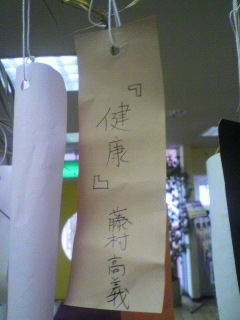 『健康』 藤村高義